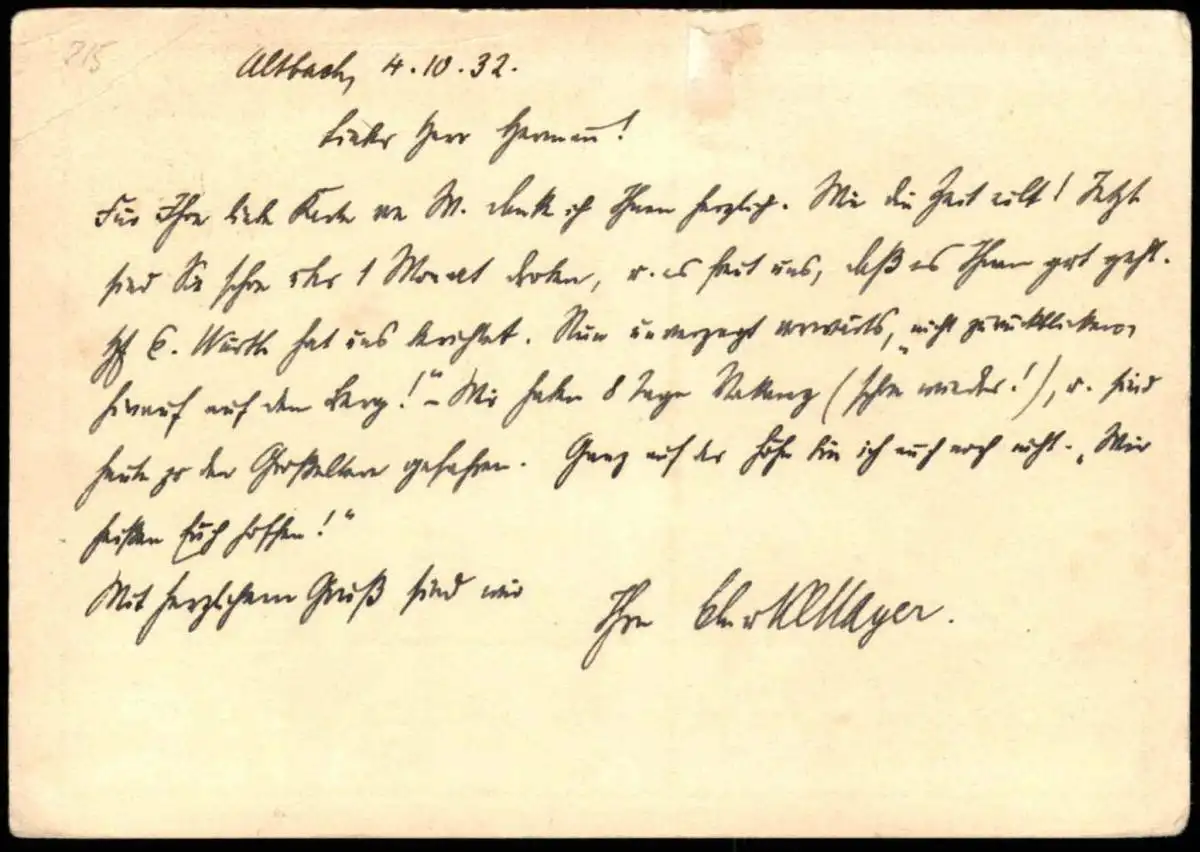 215
Altbach, 4.10.32.
Lieber Herr Hermann!
Für Ihre liebe Karte M. danke ich Ihnen herzlich. Wie die Zeit eilt! Jetzt
sind Sie schon über 1 Monat droben, u. es freut uns, daß es Ihnen gut geht.
E. Wurth hat uns berichtet. Nun unverzagt vorwärts, „nicht zurückblicken,
hinauf auf den Berg!“ – Wir haben 8 Tage Vakanz (schon wieder!), u. sind
heute zu den Großeltern gefahren. Ganz auf der Höhe bin ich auch noch nicht. „Wir
heißen Euch hoffen!“
Mit herzlichem Gruß sind wir
Ihre Mayer.